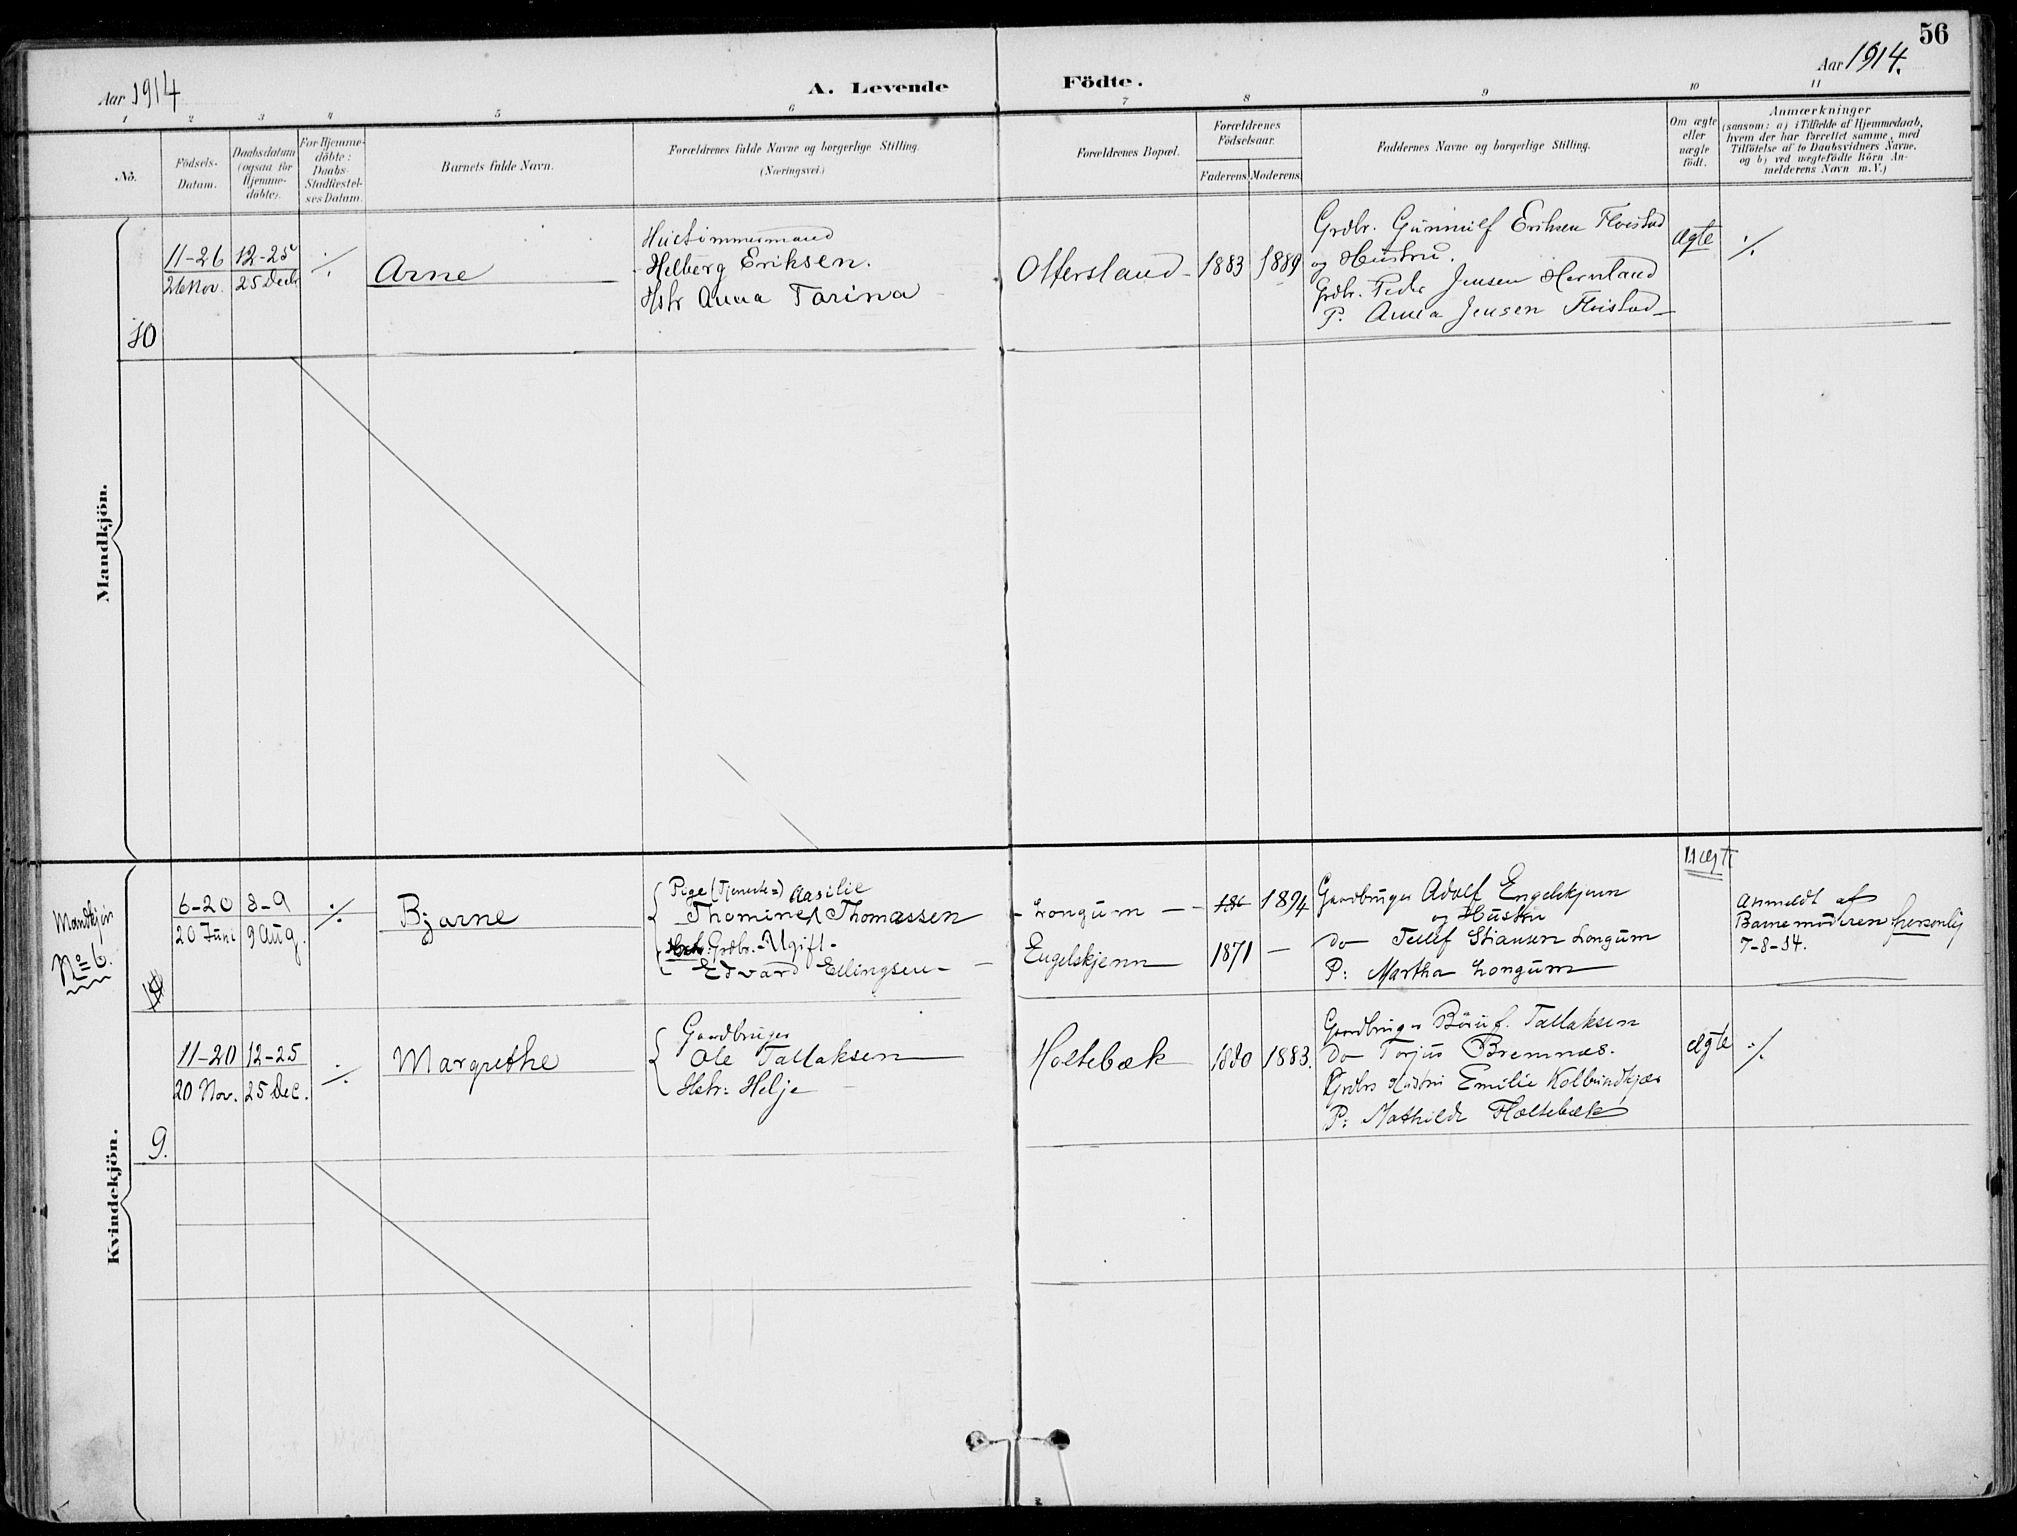 56
Aar 1914
A. Levende Födte.
Aar 1914.
1 2 3 4 5 6 7 8 9 10 11
No.
Födsels-
Datum.
Daabsdatum
(ogsaa for
Hjemme-
döbte).
For Hjemme-
döbte:
Daabs-
Stadfæstel-
ses Datum.
Barnets fulde Navn.
Forældrenes fulde Navne og borgerlige Stilling.
(Næringsvei.)
Forældrenes Bopæl.
Forældrenes
Födselsaar.
Faderens. Moderens.
Faddernes Navne og borgerlige Stilling.
Om ægte
eller
uægte
födt.
Anmærkninger
(saasom: a) i Tilfælde af Hjemmedaab,
hvem der har forrettet samme, med
Tilföielse af to Daabsvidners Navne.
og b) ved uægtefödte Börn An-
melderens Navn m.V.)
Mandkjön.
10
11-26
26 Nov.
12-25
25 Decbr
./.
Arne
Hustömmermand
Helberg Eriksen.
Hstr Anna Tarina
Ottersland
1883
1889
Grdbr. Gunnulf Eriksen Floistad
og Hustru.
Grdbr. Peder Jensen Hernland
P. Anna Jensen Floistad
Ægte
./.
Kvindekjön.
Mandkjön
No 6.
6-20
20 Juni
8-9
9 Aug.
./.
Bjarne
Pige (Tjeneste=) Aasilie
Thomine Thomassen
Grdbr. - Ugift -
Edvard Ellingsen
Longum
Engelskjenn
186
1871
1894
Gaardbruger Adolf Engelskjenn
og Hustru
Do Tellef Stiansen Longum
P: Martha Longum
Uægte
Anmeldt af
Barnemoderen personlig
7-8-14.
9.
11-20
20 Nov.
12-25
25 Dec.
./.
Margrethe
Gaardbruger
Ole Tallaksen
Hstr: Helje
Holtebæk
1880
1883.
Gaardbruger Tallaksen
Do Torjus Bremnæs.
Grdbrs Hustru Emilie Kolbuindkjær
P: Mathilde Holtebæk
Ægte
./.